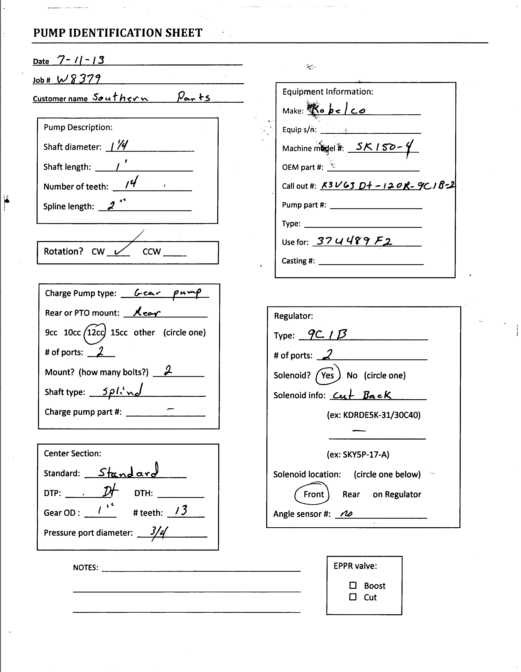 PUMP IDENTIFICATION SHEET
Date 7-11-13
Job # W8379
Customer name Southern Parts
Pump Description:
Shaft diameter: 1 1/4
Shaft length: 1'
Number of teeth: 14
Spline length: 2"
Rotation? CW ✓ CCW
Charge Pump type: Gear pump
Rear or PTO mount: Rear
9cc 10cc 12cc 15cc other (circle one)
# of ports: 2
Mount? (how many bolts?) 2
Shaft type: Splind
Charge pump part #: —
Center Section:
Standard: Standard
DTP: Dt DTH:
Gear OD: 1" # teeth: 13
Pressure port diameter: 3/4
NOTES:
Equipment Information:
Make: Kobelco
Equip s/n:
Machine model #: SK150-4
OEM part #:
Call out #: K3V63 Dt-120R-9C1B-2
Pump part #:
Type:
Use for: 374489F2
Casting #:
Regulator:
Type: 9C1B
# of ports: 2
Solenoid? Yes No (circle one)
Solenoid info: Cut Back
(ex: KDRDE5K-31/30C40)
—
(ex: SKY5P-17-A)
Solenoid location: (circle one below)
Front Rear on Regulator
Angle sensor #: no
EPPR valve:
☐ Boost
☐ Cut